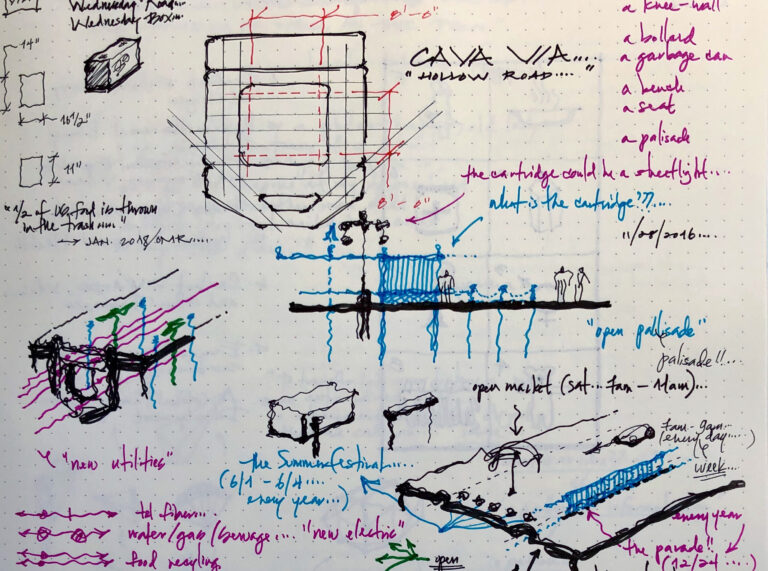 Wednesday Road....
Wednesday Box...
14"
16 1/2"
11"
"1/2 of US food is thrown
in the trash ....."
→ JAN. 2018/
8'-0"
CAVA VIA....
"HOLLOW ROAD....."
8'-0"
a knee-wall
a bollard
a garbage can
a bench
a seat
a palisade
the cartridge could be a streetlight.....
what is the cartridge???....
11/28/2016....
"open pallisade"
palisade!!....
open market (Sat... 7am - 11am)...
7am-9am...
(every day.....)
week....
"new utilities"
the Summer Festival....
(6/1 - 6/4....
every year...)
tel fiber....
water/gas/sewage.... "new electric"
food recycling
open
every year
the parade!!
(12/24 ....